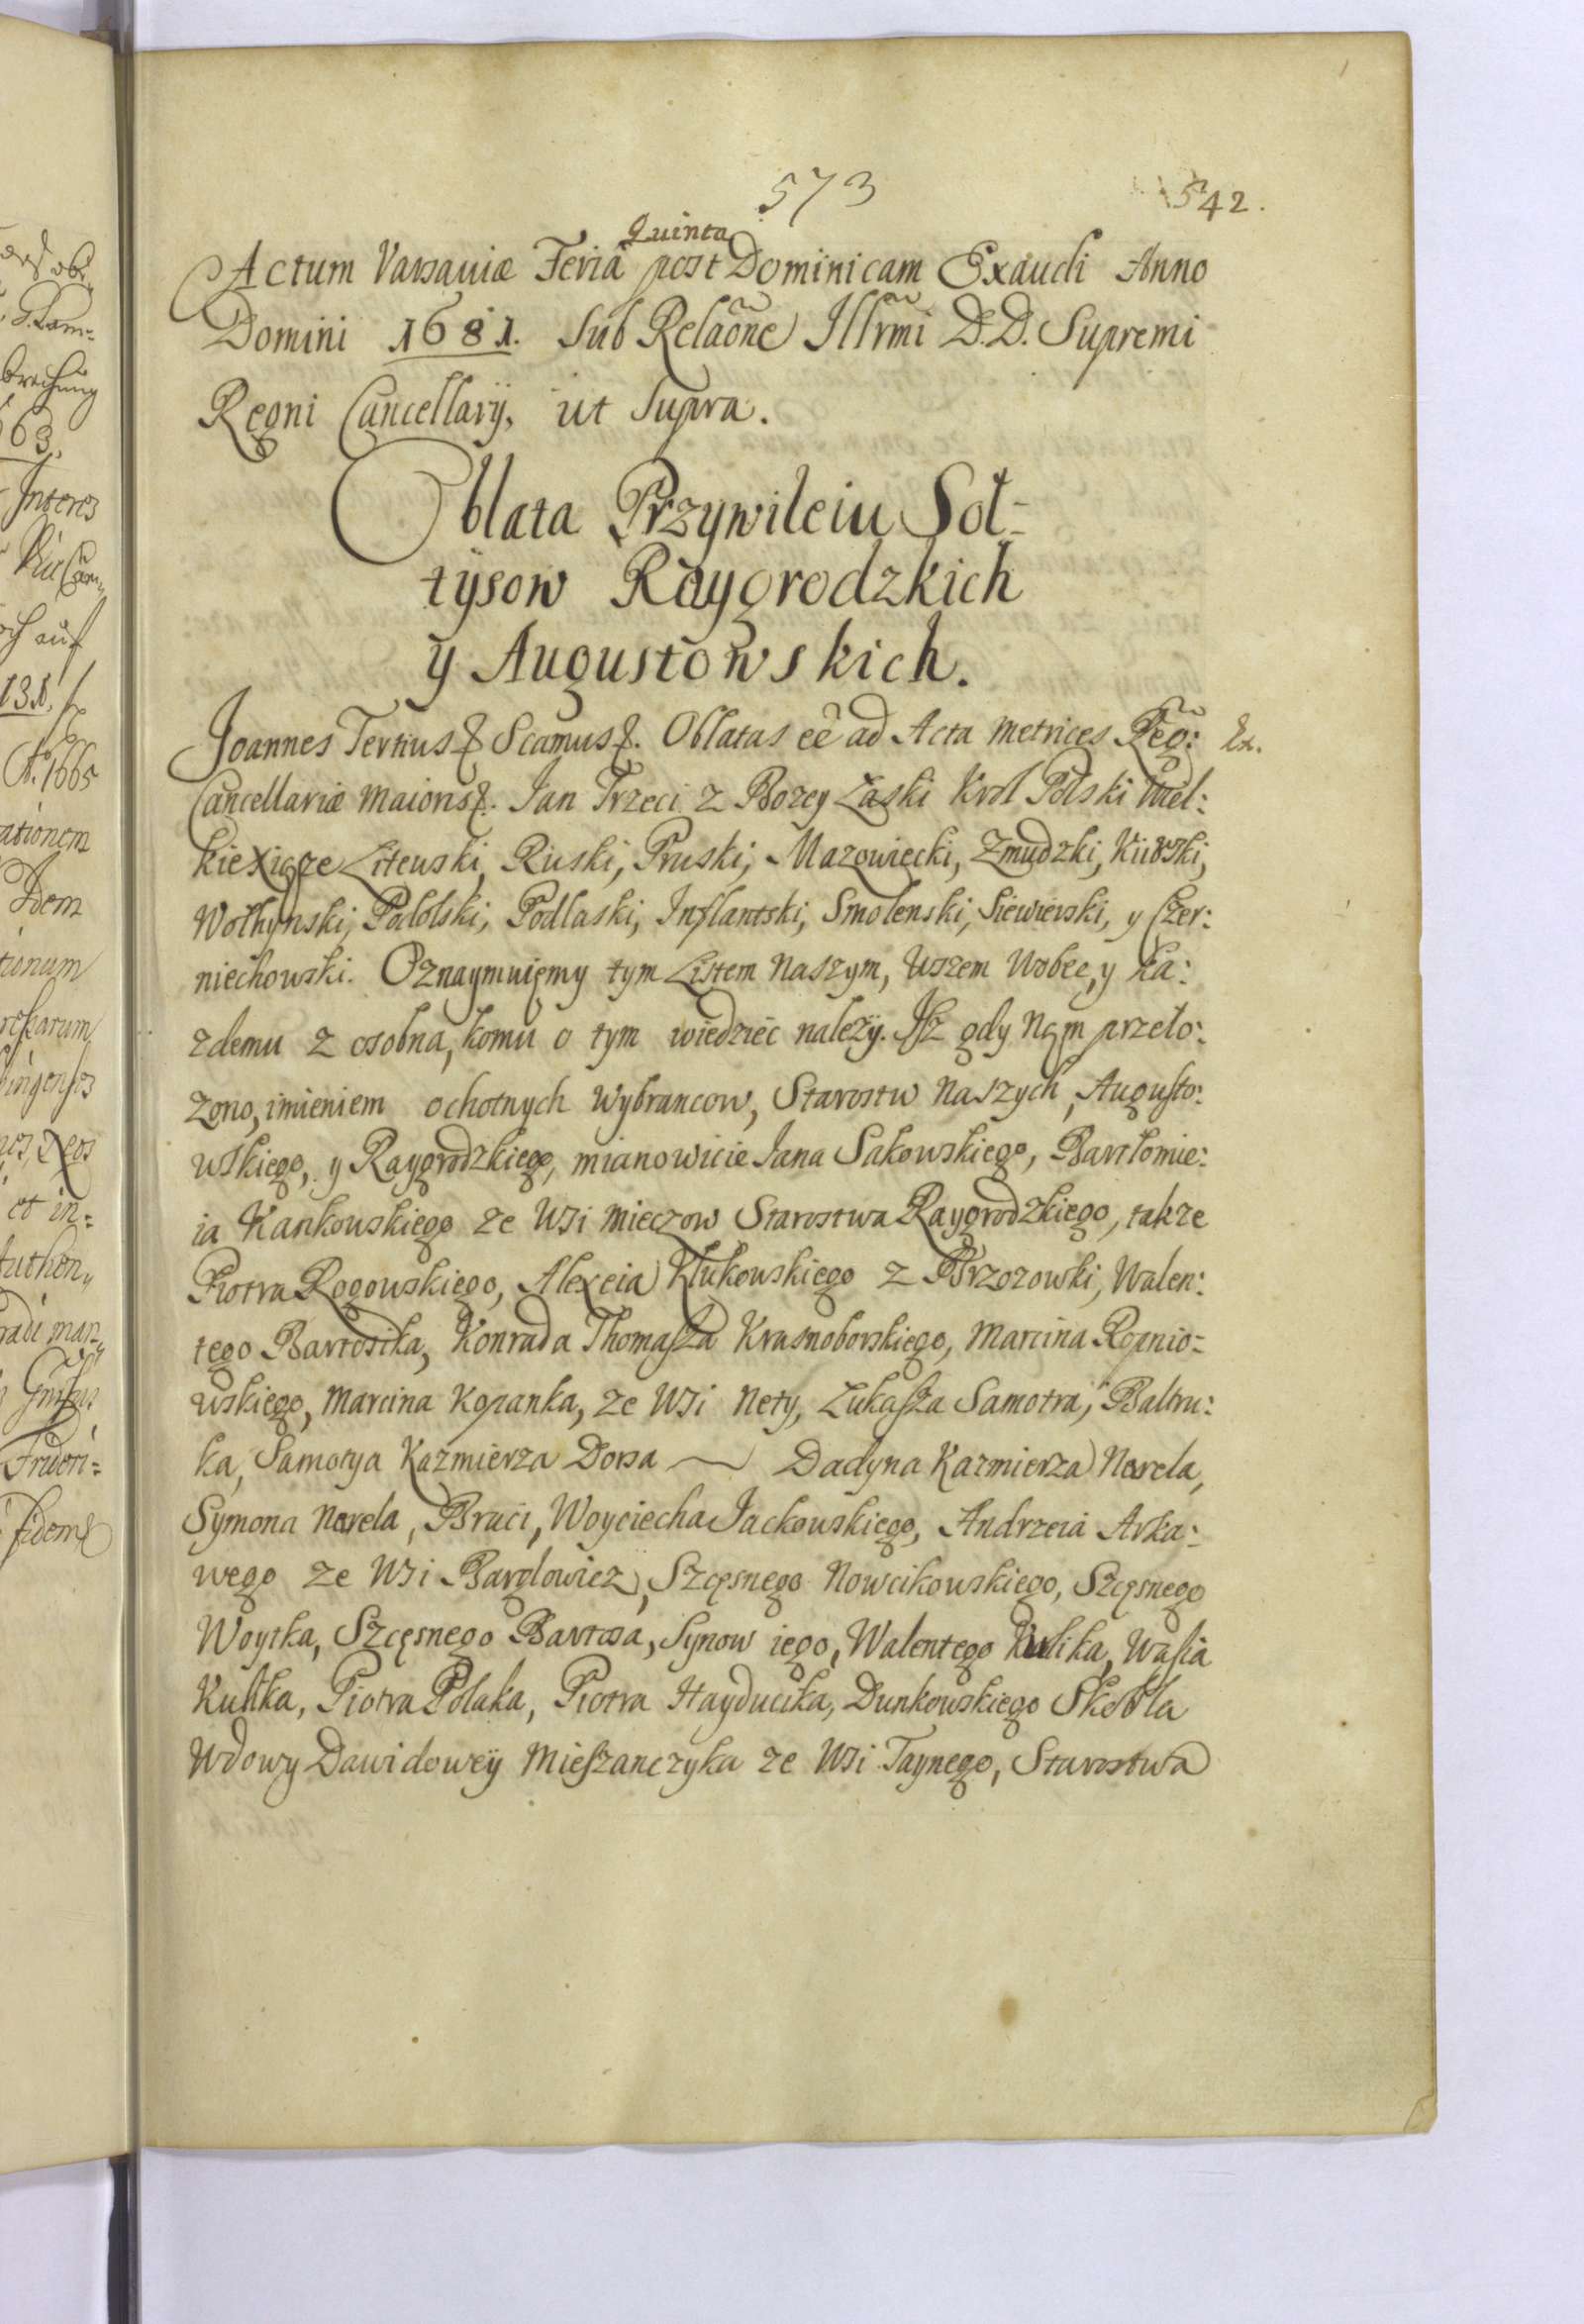 573
542.
Quinta
Actum Varsaviæ Feriâ post Dominicam Exaudi Anno
Domini 1681. Sub Relaõne Illrmi D.D. Supremi
Regni Cancellarij, ut Supra.
Oblata Przywileiu Soł-
tysow Raygrodzkich
y Augustowskich.
Joannes Tertius &. Scamus &. Oblatas eê ad Acta Metrices Reg: Ex.
Cancellariæ Maioris &. Jan Trzeci z Bozey Łaski Krol Polski Wiel:
kie Xiąze Litewski, Ruski, Pruski, Mazowiecki, Zmudzki, Kiiowski,
Wołhynski, Podolski, Podlaski, Inflantski, Smolenski, Siewierski, y Czer:
niechowski. Oznaymuięmy tym Listem Naszym, Wszem Wobec, y Ka:
zdemu z osobna, komu o tym wiedzieć należy. Isz gdy Nąm przeło:
zono, imieniem ochotnych Wybrancow, Starostw Naszych, Augusto:
wskiego, y Raygrodzkiego, mianowicie Jana Sakowskiego, Bartłomie:
ia Kankowskiego ze Wsi Mieczow Starostwa Raygrodzkiego, takze
Piotra Rogowskiego, Alexeia Klukowskiego z Brzozowki, Walen:
tego Bartosika, Konrada Thomasza Krasnoborskiego, Marcina Ropnio-
wskiego, Marcina Kopanka, ze Wsi Nety, Łukasza Samotra, Baltru:
ka, Samotya Kazmierza Dorsa ~ Dadyna Kazmierza Nerela,
Symona Nerela, Braci, Woyciecha Jackowskiego, Andrzeia Arka:
wego ze Wsi Barglowicz, Szczęsnego Nowcikowskiego, Szczęsnego
Woytka, Szczęsnego Bartosa, Synow iego, Walentego Kulika, Wasia
Kulika, Piotra Polaka, Piotra Hayducika, Dunkowskiego Skobla
Wdowy Dawidoweÿ Mieszanczyka ze Wsi Taynego, Starostwa